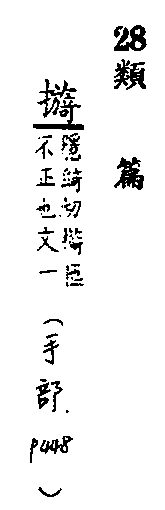 28 類篇
隱綺切臣
不正也文一
(手部. P448)